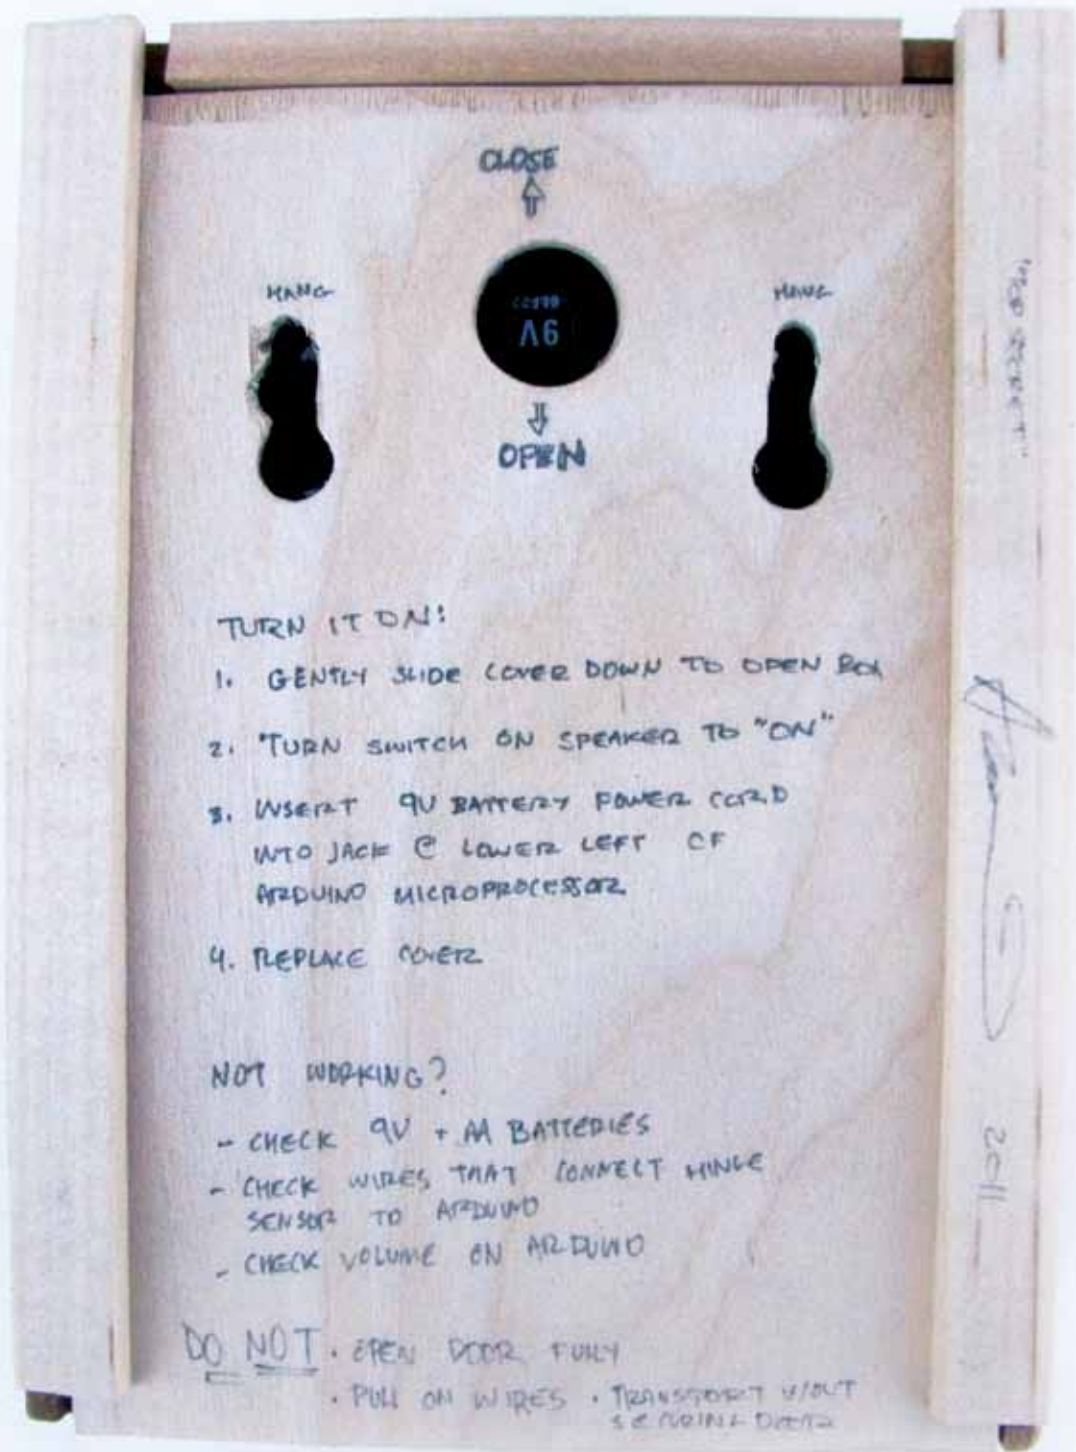 CLOSE
HANG
9V
HANG
OPEN
TURN IT ON:
1. GENTLY SLIDE COVER DOWN TO OPEN BOX
2. TURN SWITCH ON SPEAKER TO "ON"
3. INSERT 9V BATTERY POWER CORD
INTO JACK @ LOWER LEFT OF
ARDUINO MICROPROCESSOR
4. REPLACE COVER
NOT WORKING?
- CHECK 9V + AA BATTERIES
- CHECK WIRES THAT CONNECT HINGE
SENSOR TO ARDUINO
- CHECK VOLUME ON ARDUINO
DO NOT · OPEN DOOR FULLY
· PULL ON WIRES · TRANSPORT W/OUT
SECURING DOOR
"TOP SECRET"
2011